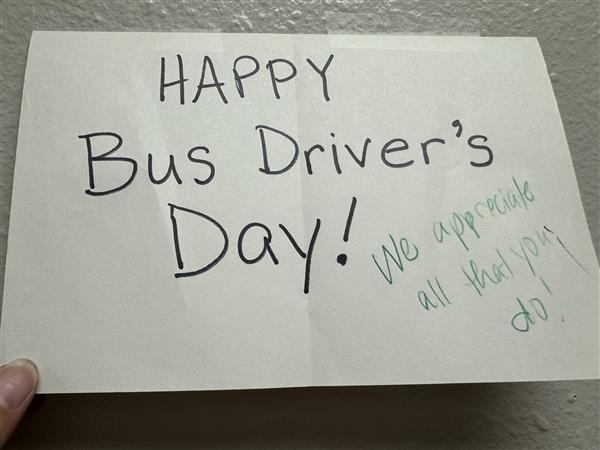 HAPPY
Bus Driver's
Day!
We appreciate
all that you
do!